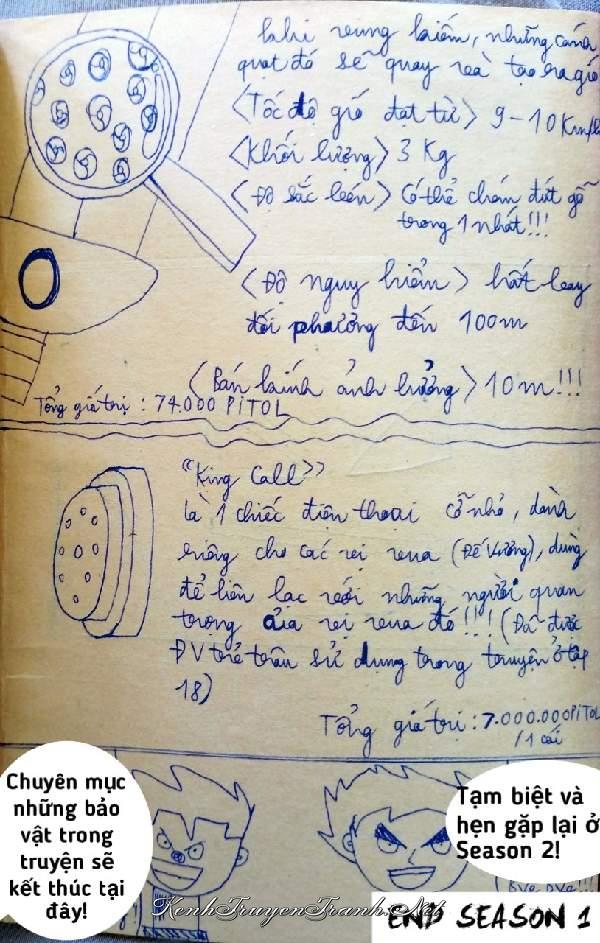 khi vung kiếm, những cánh
quạt đó sẽ quay và tạo ra gió
<Tốc độ gió đạt từ> 9-10 Km/h
<Khối lượng> 3 Kg
<Độ sắc bén> Có thể chém đứt gỗ
trong 1 nhát!!!
<Độ nguy hiểm> hất bay
đối phương đến 100m
<Bán kính ảnh hưởng> 10m!!!
Tổng giá trị : 74.000 PITOL
<<King Call>>
là 1 chiếc điện thoại cỡ nhỏ, dành
riêng cho các vị vua (Đế Vương), dùng
để liên lạc với những người quan
trọng của vị vua đó!!! (Đã được
ĐV trẻ trâu sử dụng trong truyện ở tập
18)
Tổng giá trị : 7.000.000 PITOL
/1 cái
Chuyên mục
những bảo
vật trong
truyện sẽ
kết thúc tại
đây!
Tạm biệt và
hẹn gặp lại ở
Season 2!
KenhTruyenTranh.Net
END SEASON 1